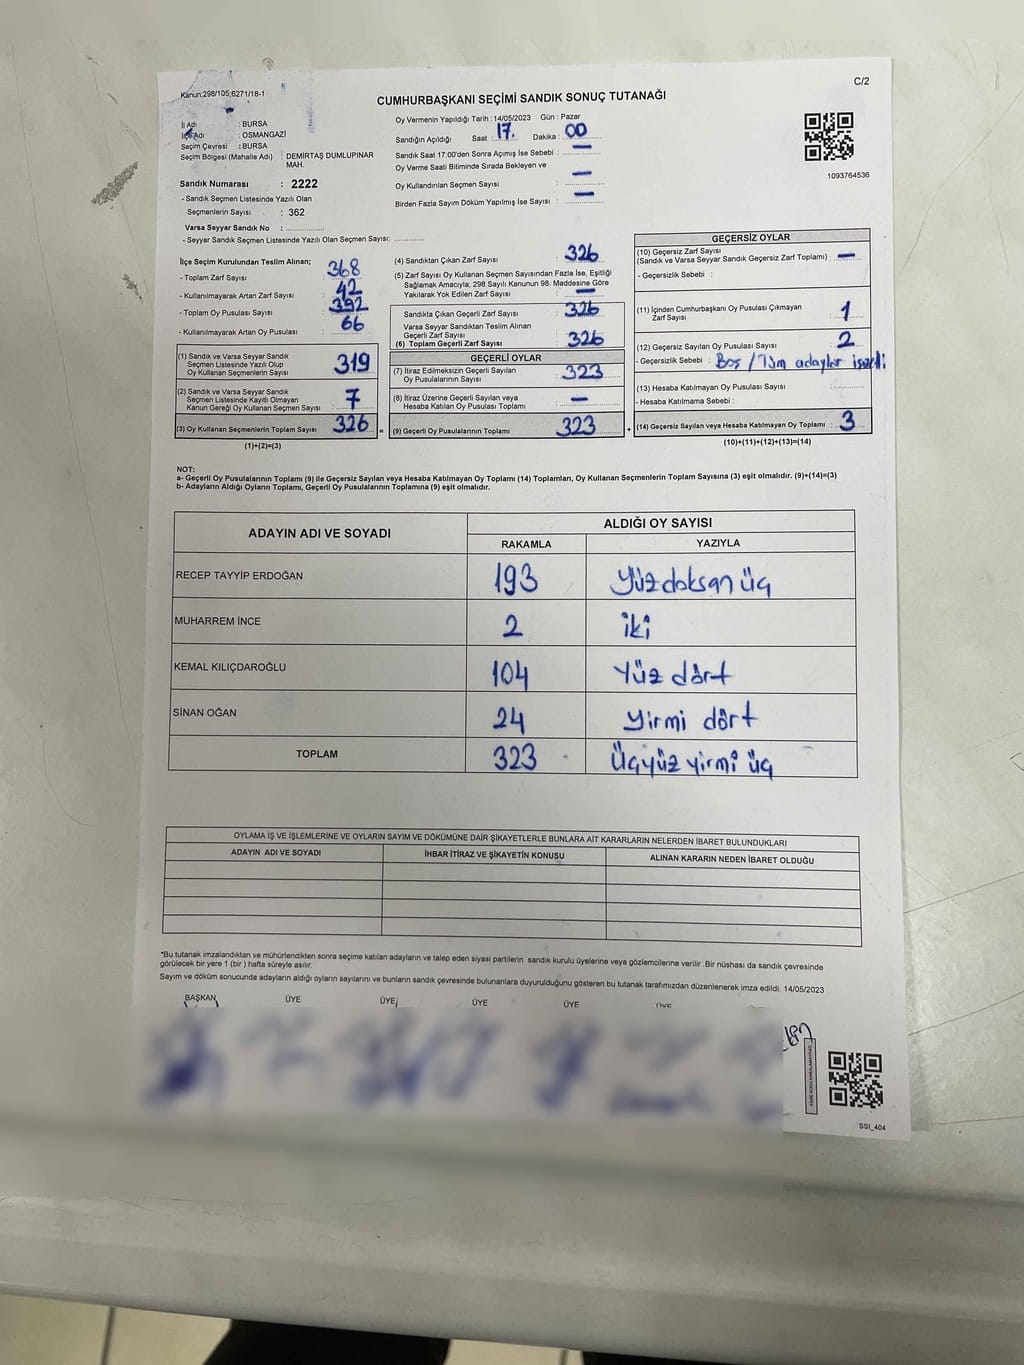 C/2
Kanun,298/105,6271/18-1
CUMHURBAŞKANI SEÇİMİ SANDIK SONUÇ TUTANAĞI
İl Adı : BURSA
İlçe Adı : OSMANGAZİ
Seçim Çevresi : BURSA
Seçim Bölgesi (Mahalle Adı) : DEMİRTAŞ DUMLUPINAR MAH.
Sandık Numarası : 2222
- Sandık Seçmen Listesinde Yazılı Olan
Seçmenlerin Sayısı : 362
Varsa Seyyar Sandık No :
- Seyyar Sandık Seçmen Listesinde Yazılı Olan Seçmen Sayısı:
Oy Vermenin Yapıldığı Tarih :14/05/2023 Gün : Pazar
Sandığın Açıldığı Saat : 17. Dakika : 00
Sandık Saat 17:00'den Sonra Açımış İse Sebebi : —
Oy Verme Saati Bitiminde Sırada Bekleyen ve
Oy Kullandırılan Seçmen Sayısı : —
Birden Fazla Sayım Döküm Yapılmış İse Sayısı : —
1093764536
İlçe Seçim Kurulundan Teslim Alınan;
- Toplam Zarf Sayısı : 368
- Kullanılmayarak Artan Zarf Sayısı : 42
- Toplam Oy Pusulası Sayısı : 392
- Kullanılmayarak Artan Oy Pusulası : 66
(1) Sandık ve Varsa Seyyar Sandık
Seçmen Listesinde Yazılı Olup
Oy Kullanan Seçmenlerin Sayısı : 319
(2) Sandık ve Varsa Seyyar Sandık
Seçmen Listesinde Kayıtlı Olmayan
Kanun Gereği Oy Kullanan Seçmen Sayısı : 7
(3) Oy Kullanan Seçmenlerin Toplam Sayısı : 326 =
(1)+(2)=(3)
(4) Sandıktan Çıkan Zarf Sayısı : 326
(5) Zarf Sayısı Oy Kullanan Seçmen Sayısından Fazla İse, Eşitliği
Sağlamak Amacıyla, 298 Sayılı Kanunun 98. Maddesine Göre
Yakılarak Yok Edilen Zarf Sayısı : —
Sandıkta Çıkan Geçerli Zarf Sayısı : 326
Varsa Seyyar Sandıktan Teslim Alınan
Geçerli Zarf Sayısı :
(6) Toplam Geçerli Zarf Sayısı : 326
GEÇERLİ OYLAR
(7) İtiraz Edilmeksizin Geçerli Sayılan
Oy Pusulalarının Sayısı : 323
(8) İtiraz Üzerine Geçerli Sayılan veya
Hesaba Katılan Oy Pusulası Toplamı : —
(9) Geçerli Oy Pusulalarının Toplamı : 323 +
GEÇERSİZ OYLAR
(10) Geçersiz Zarf Sayısı
(Sandık ve Varsa Seyyar Sandık Geçersiz Zarf Toplamı) : —
- Geçersizlik Sebebi :
(11) İçinden Cumhurbaşkanı Oy Pusulası Çıkmayan
Zarf Sayısı : 1
(12) Geçersiz Sayılan Oy Pusulası Sayısı : 2
- Geçersizlik Sebebi : Boş / Tüm adaylar
(13) Hesaba Katılmayan Oy Pusulası Sayısı :
- Hesaba Katılmama Sebebi :
(14) Geçersiz Sayılan veya Hesaba Katılmayan Oy Toplamı : 3
(10)+(11)+(12)+(13)=(14)
NOT:
a- Geçerli Oy Pusulalarının Toplamı (9) ile Geçersiz Sayılan veya Hesaba Katılmayan Oy Toplamı (14) Toplamları, Oy Kullanan Seçmenlerin Toplam Sayısına (3) eşit olmalıdır. (9)+(14)=(3)
b- Adayların Aldığı Oyların Toplamı, Geçerli Oy Pusulalarının Toplamına (9) eşit olmalıdır.
ADAYIN ADI VE SOYADI ALDIĞI OY SAYISI
RAKAMLA YAZIYLA
RECEP TAYYİP ERDOĞAN 193 Yüzdoksan üç
MUHARREM İNCE 2 iki
KEMAL KILIÇDAROĞLU 104 Yüz dört
SİNAN OĞAN 24 Yirmi dört
TOPLAM 323 Üçyüz yirmi üç
OYLAMA İŞ VE İŞLEMLERİNE VE OYLARIN SAYIM VE DÖKÜMÜNE DAİR ŞİKAYETLERLE BUNLARA AİT KARARLARIN NELERDEN İBARET BULUNDUKLARI
ADAYIN ADI VE SOYADI İHBAR İTİRAZ VE ŞİKAYETİN KONUSU ALINAN KARARIN NEDEN İBARET OLDUĞU
*Bu tutanak imzalandıktan ve mühürlendikten sonra seçime katılan adayların ve talep eden siyasi partilerin sandık kurulu üyelerine veya gözlemcilerine verilir .Bir nüshası da sandık çevresinde
görülecek bir yere 1 (bir ) hafta süreyle asılır.
Sayım ve döküm sonucunda adayların aldığı oyların sayılarını ve bunların sandık çevresinde bulunanlara duyurulduğunu gösteren bu tutanak tarafımızdan düzenlenerek imza edildi. 14/05/2023
BAŞKAN ÜYE ÜYE ÜYE ÜYE ÜYE ÜYE
SSI_404